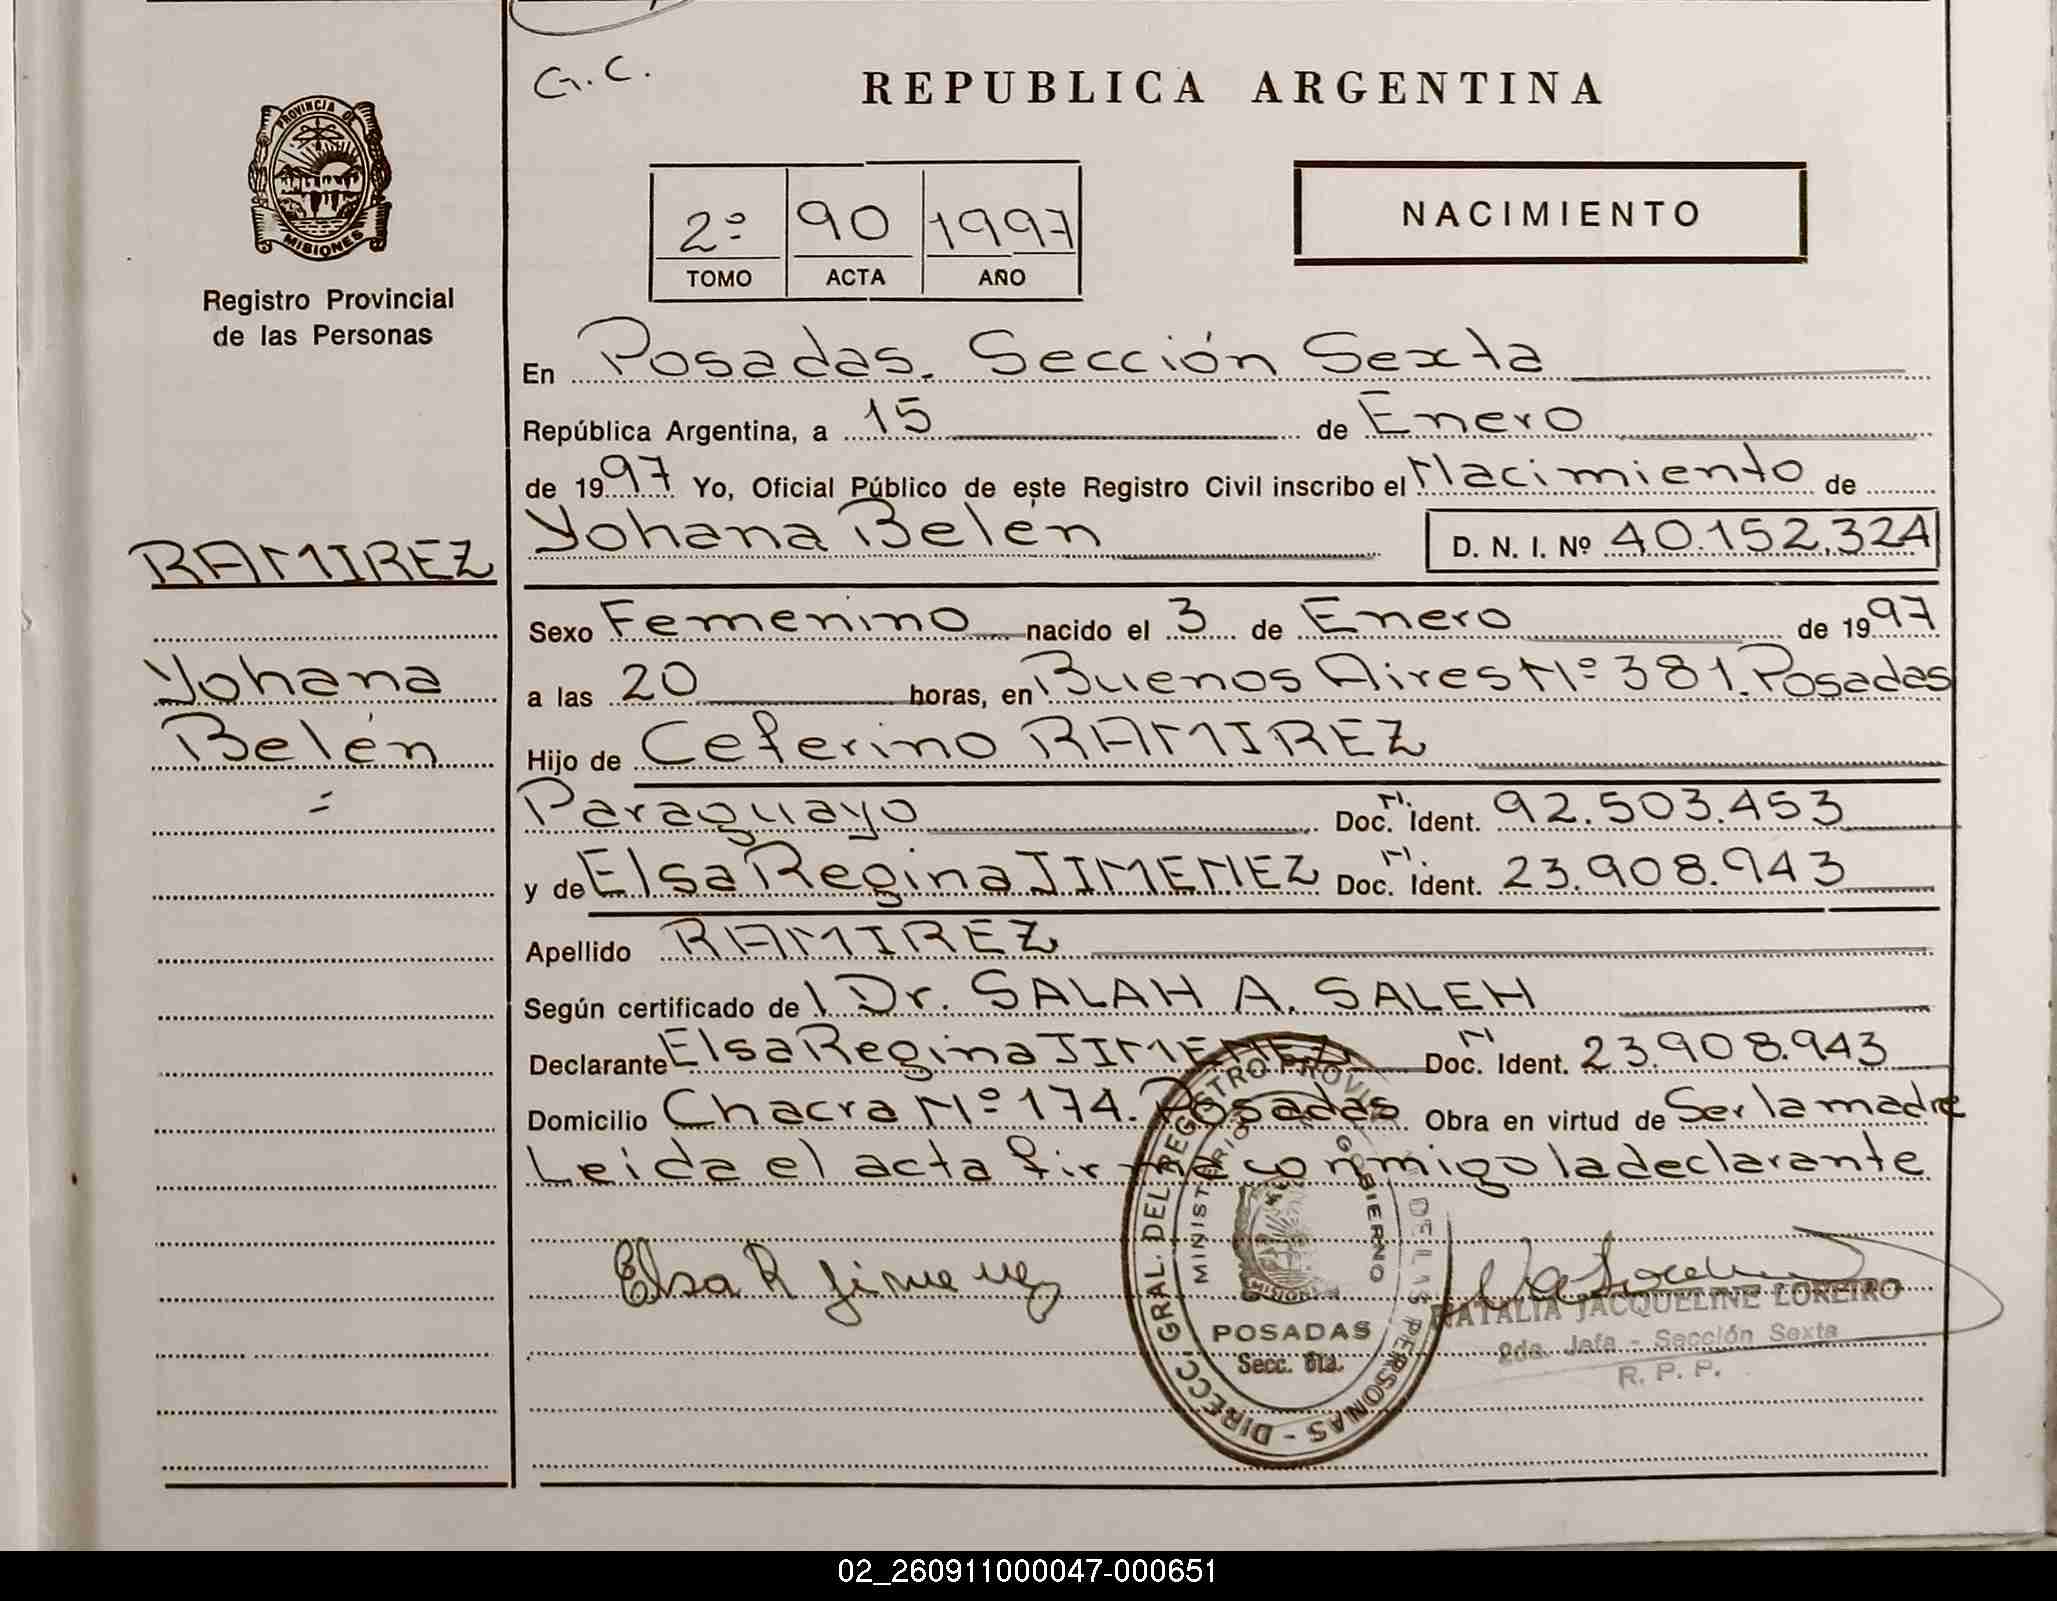 G.C.
REPUBLICA ARGENTINA
PROVINCIA DE
MISIONES
Registro Provincial
de las Personas
2º 90 1997
TOMO ACTA AÑO
NACIMIENTO
En Posadas. Sección Sexta
República Argentina, a 15 de Enero
de 1997 Yo, Oficial Público de este Registro Civil inscribo el Nacimiento de
Yohana Belén D. N. I. Nº 40.152.324
RAMIREZ
Sexo Femenino nacido el 3 de Enero de 1997
Yohana
a las 20 horas, en Buenos Aires Nº 381. Posadas
Belén
Hijo de Ceferino RAMIREZ
=
Paraguayo Doc. N. Ident. 92.503.453
y de Elsa Regina JIMENEZ Doc. N. Ident. 23.908.943
Apellido RAMIREZ
Según certificado de l Dr. SALAH A. SALEH
Declarante Elsa Regina JIMENEZ Doc. N Ident. 23.908.943
Domicilio Chacra Nº 174. Posadas Obra en virtud de Ser la madre
Leida el acta firma conmigo la declarante
Elsa R Jimenez
DIRECC. GRAL. DEL REGISTRO PROVI DE LAS PERSONAS -
MINISTERIO GOBIERNO
POSADAS
Secc. 6ta.
NATALIA JACQUELINE LOREIRO
2da. Jefa - Sección Sexta
R. P. P.
02_260911000047-000651